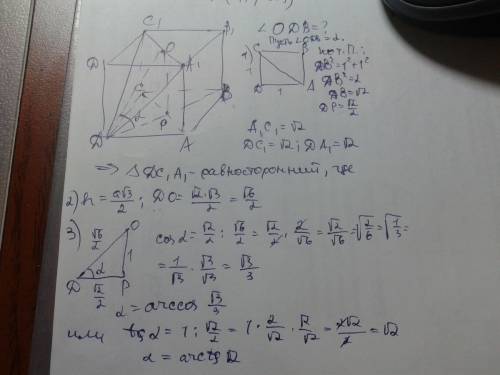 ∠ODB = ?
Пусть ∠ODB = α.
C₁ B₁
O
D₁ A₁
C B
α P
D A
1) C B
1
D 1 A
по т. П.:
AB² = 1² + 1²
AB² = 2
AB = √2
DP = √2/2
A₁C₁ = √2
DC₁ = √2; DA₁ = √2
⇒ △DC₁A₁ - равносторонний, где
2) h = a√3/2; DO = √2·√3/2 = √6/2
3) √6/2 O
1
D α P
√2/2
cos α = √2/2 : √6/2 = √2/2 · 2/√6 = √2/√6 = √(2/6) = √(1/3) =
= 1/√3 · √3/√3 = √3/3
α = arccos √3/3
или tg α = 1 : √2/2 = 1 · 2/√2 · √2/√2 = 2√2/2 = √2
α = arctg √2